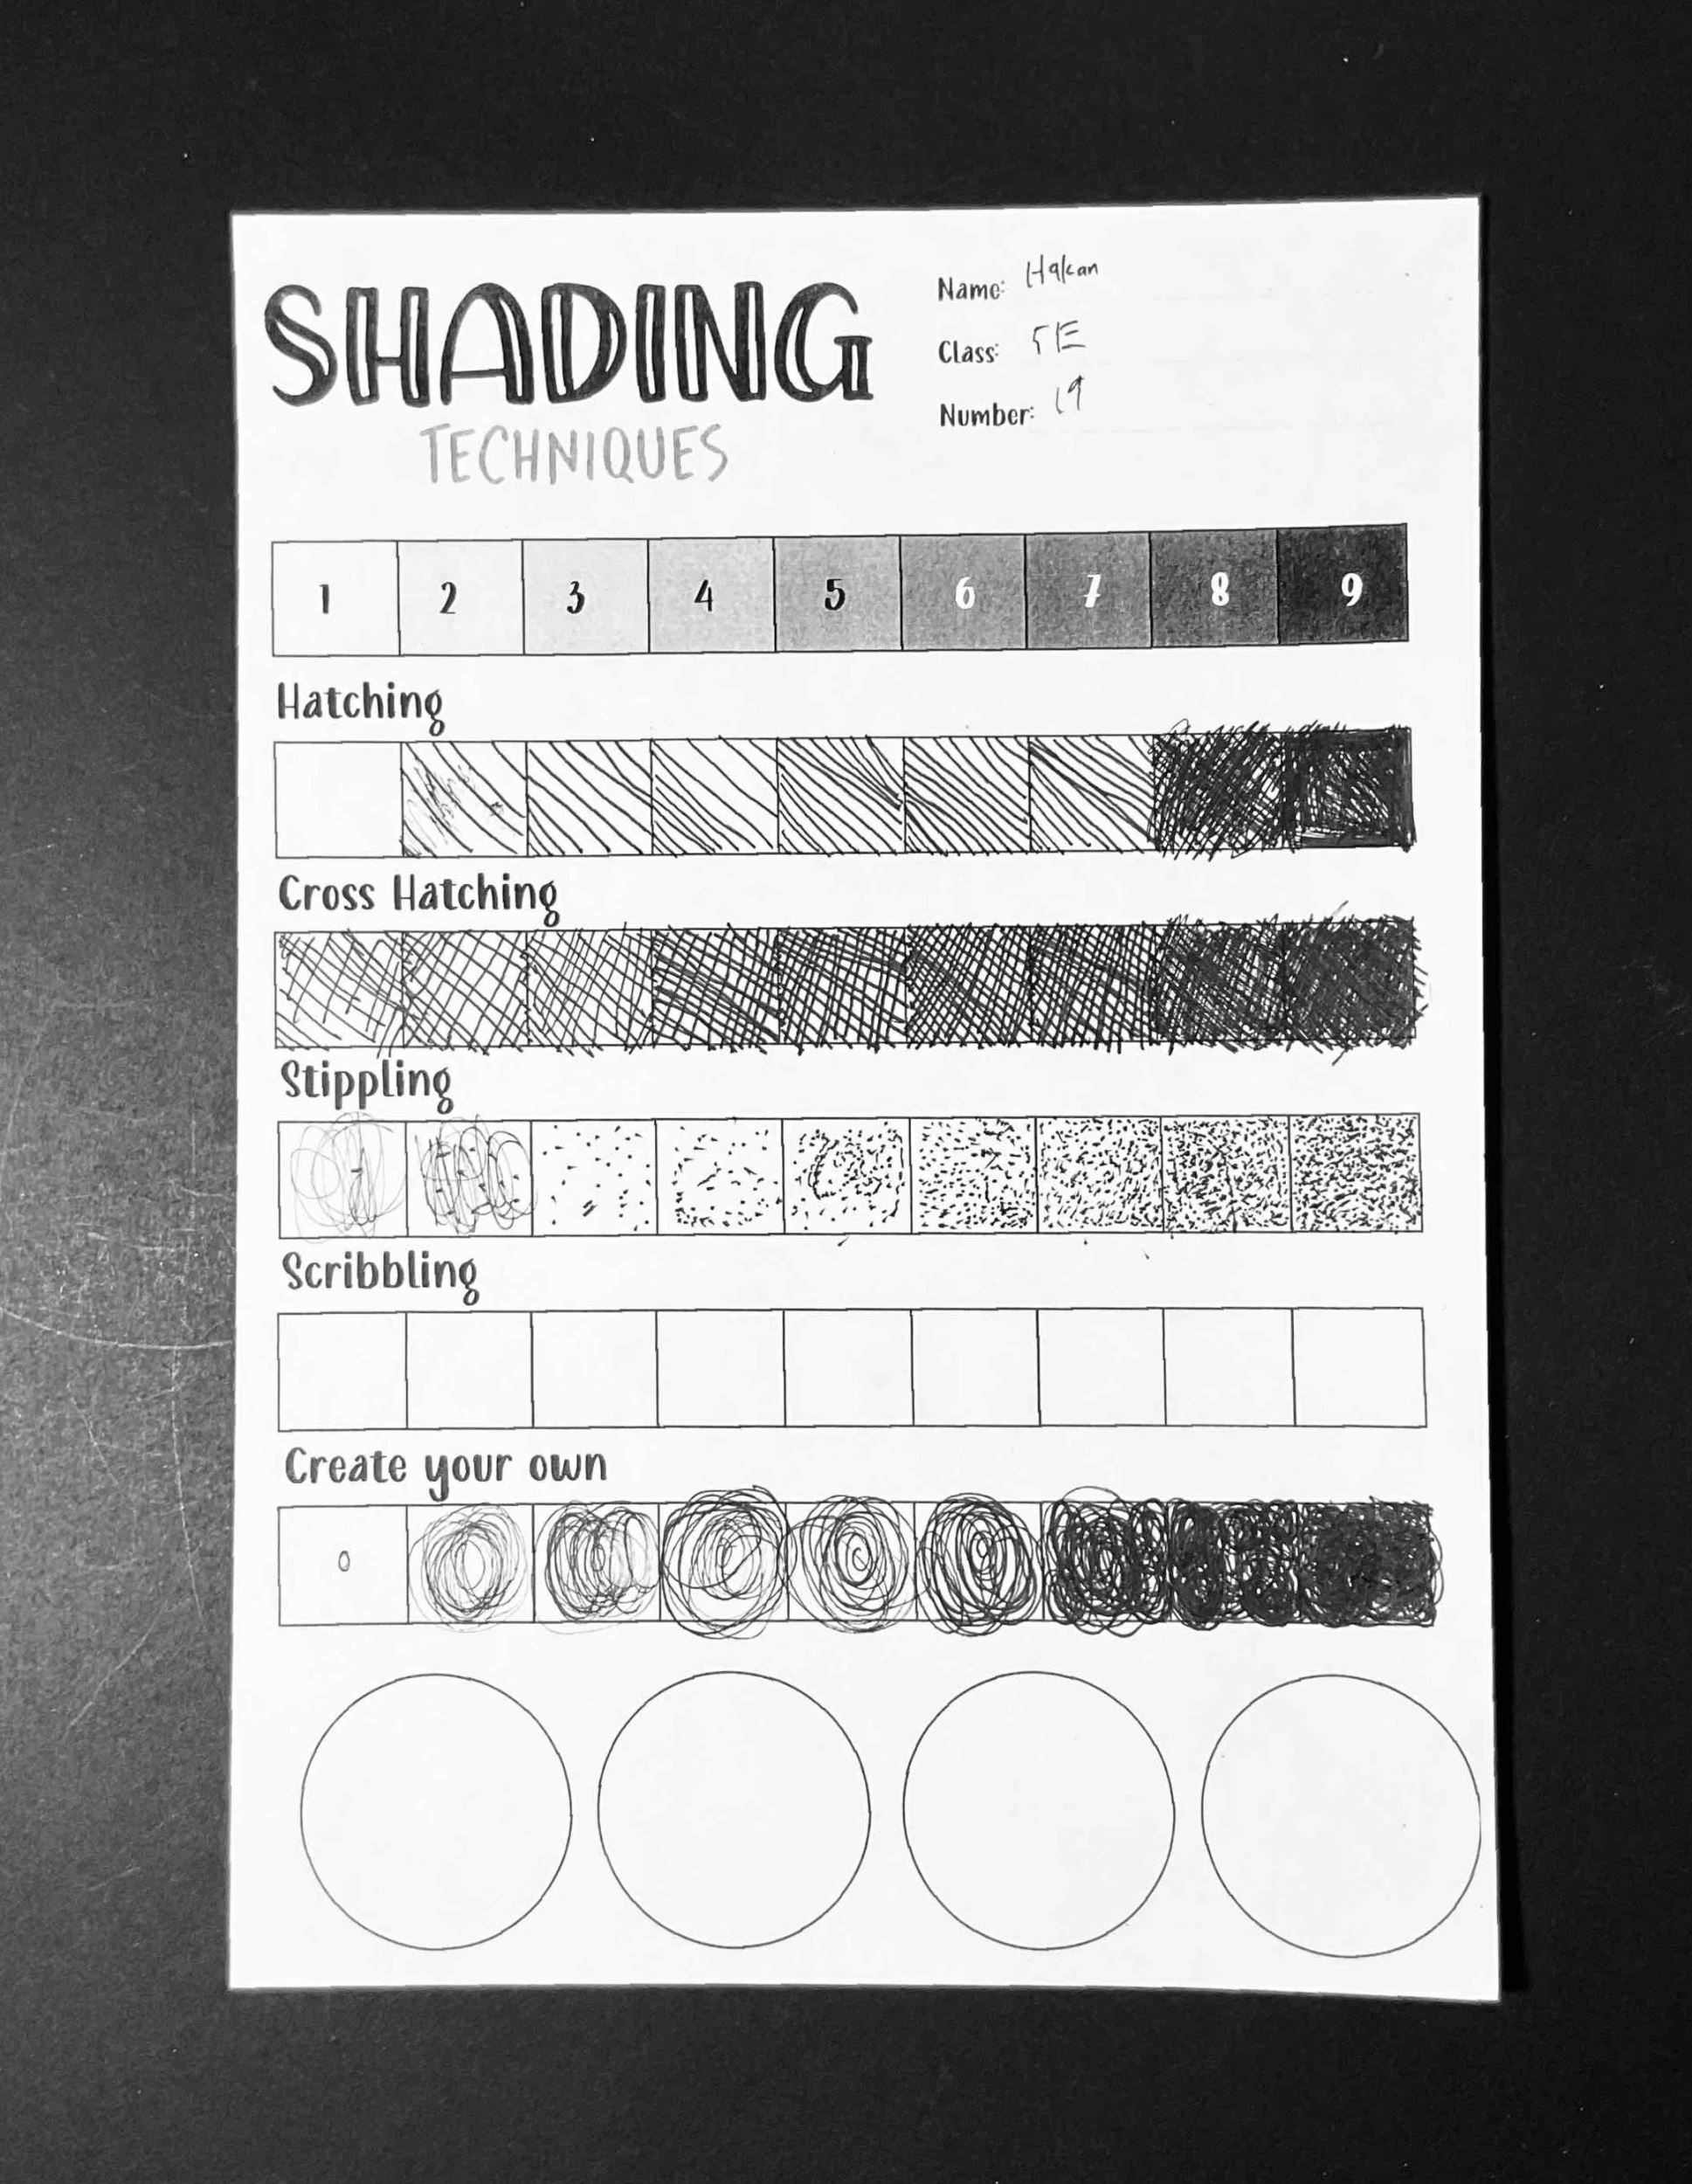 SHADING
TECHNIQUES
Name: Hakan
Class: 5E
Number: 19
1 2 3 4 5 6 7 8 9
Hatching
Cross Hatching
Stippling
Scribbling
Create your own